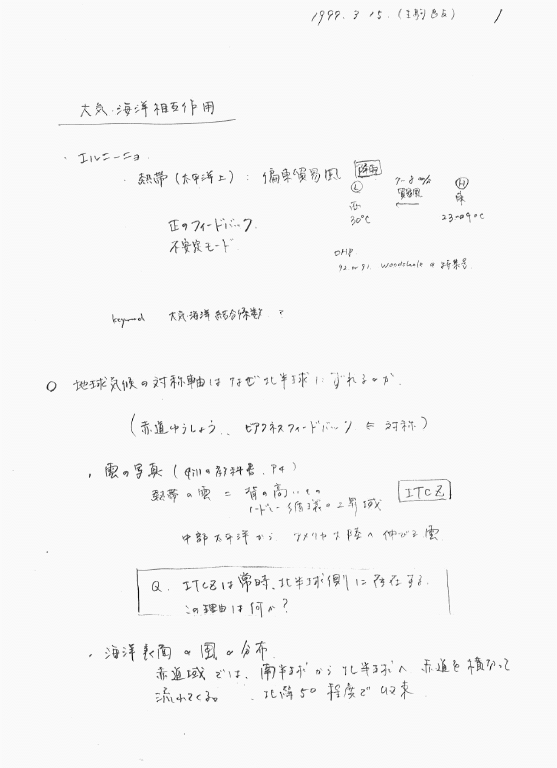 1999. 3. 15. 1
大気・海洋相互作用
・エルニーニョ
・熱帯(太平洋上): 偏東貿易風
降雨
L 7-8 m/s H
西 貿易風 東
30℃
正のフィードバック
不安定モード
OHP
92 or 91. Woodshole の
keyword 大気・海洋結合 ?
○ 地球気候の対称軸はなぜ北半球にずれるのか.
(赤道ゆうしょう、ビアクネスフィードバック は 対称)
・雲の写真( の教科書. P4)
熱帯の雲 = 背の高いもの
ハードレー循環の上昇域 ITCZ
中部太平洋から アメリカ大陸へ伸びる雲
Q. ITCZは常時、北半球側に存在する.
この理由は何か?
・海洋表面の風の分布
赤道域では、南半球から北半球へ赤道を横切って
流れてくる。 北緯5°程度で収束